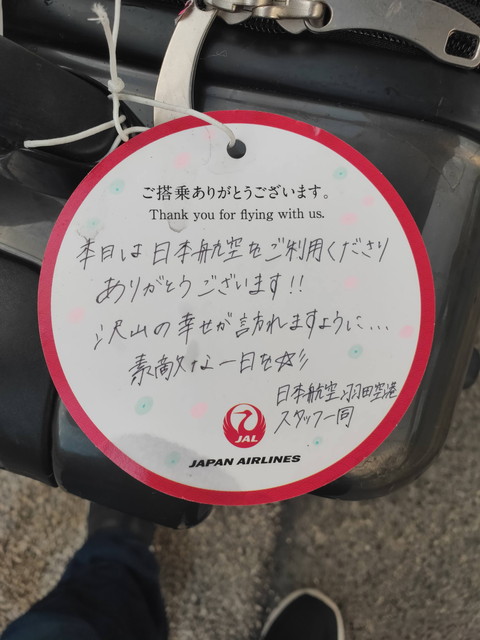 ご搭乗ありがとうございます。
Thank you for flying with us.
本日は日本航空をご利用くださり
ありがとうございます!!
沢山の幸せが訪れますように...
素敵な一日を☆彡
日本航空羽田空港
スタッフ一同
JAL
JAPAN AIRLINES